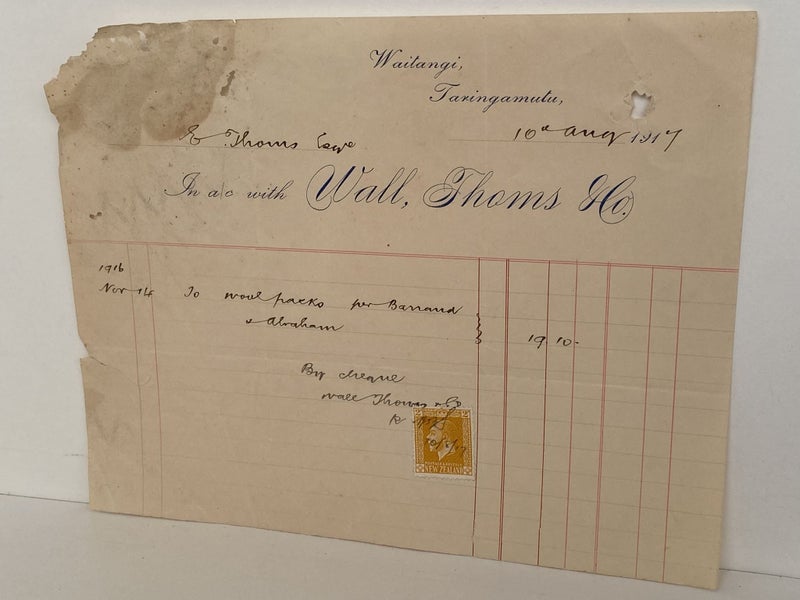 Waitangi,
Taringamutu,
10th Aug 1917
E Thoms Esqre
In a/c with Wall, Thoms & Co.
1916
Nov 14 To wool packs per Barraud
& Abraham 19 10 -
By cheque
Wall Thoms & Co
2 2
POSTAGE & REVENUE
NEW ZEALAND